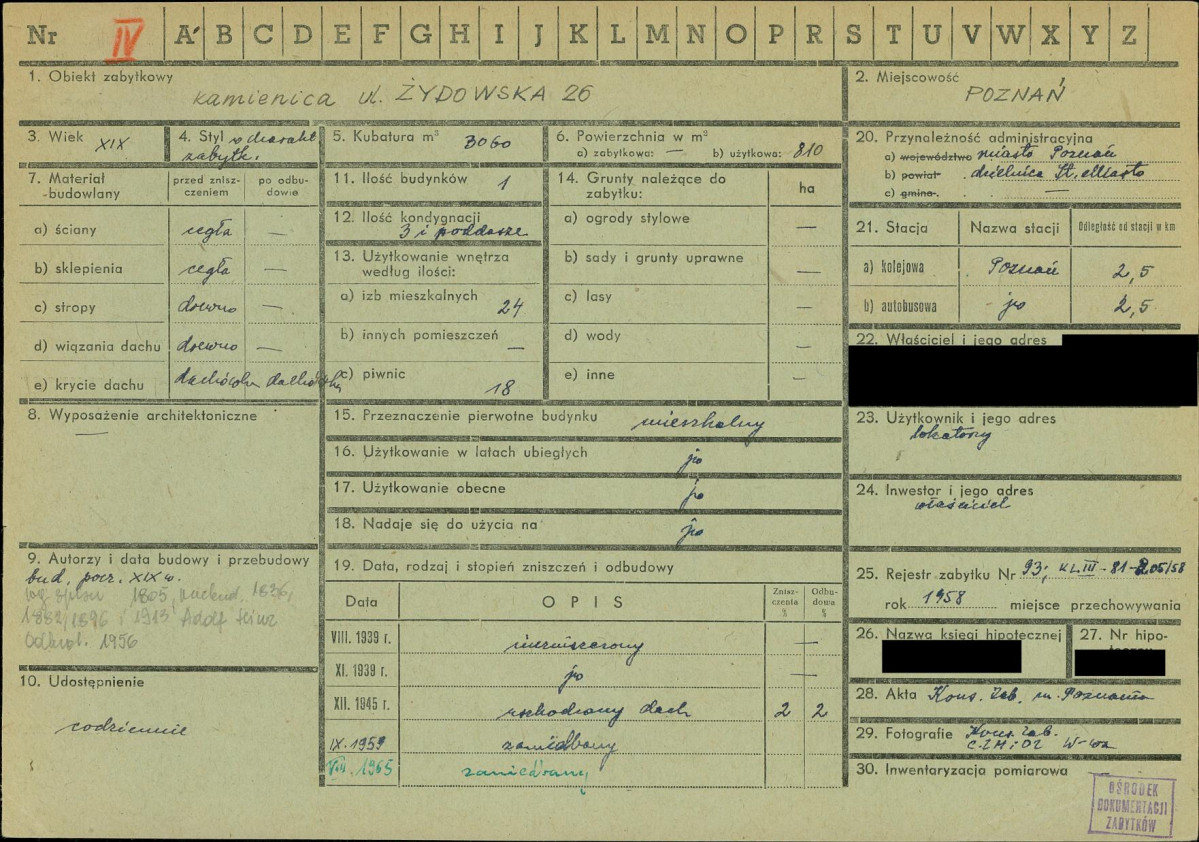 Nr IV A B C D E F G H I J K L M N O P R S T U V W X Y Z
1. Obiekt zabytkowy
kamienica ul. ŻYDOWSKA 26
2. Miejscowość
POZNAŃ
3. Wiek XIX
4. Styl o charakt.
zabytk.
5. Kubatura m³ 3060
6. Powierzchnia w m²
a) zabytkowa: — b) użytkowa: 810
7. Materiał -budowlany
przed zniszczeniem
po odbudowie
a) ściany cegła —
b) sklepienia cegła —
c) stropy drewno —
d) wiązania dachu drewno —
e) krycie dachu dachówka dachówka
8. Wyposażenie architektoniczne
—
9. Autorzy i data budowy i przebudowy
bud. pocz. XIX w.
1805, nadbud. 1836,
1882, 1896 i 1913 Adolf
Odbud. 1956
10. Udostępnienie
codziennie
11. Ilość budynków 1
12. Ilość kondygnacji
3 i poddasze
13. Użytkowanie wnętrza według ilości:
a) izb mieszkalnych 24
b) innych pomieszczeń —
c) piwnic 18
14. Grunty należące do zabytku:
ha
a) ogrody stylowe —
b) sady i grunty uprawne —
c) lasy —
d) wody —
e) inne —
15. Przeznaczenie pierwotne budynku mieszkalny
16. Użytkowanie w latach ubiegłych jw
17. Użytkowanie obecne jw
18. Nadaje się do użycia na jw
19. Data, rodzaj i stopień zniszczeń i odbudowy
Data OPIS Zniszczenia % Odbudowa %
VIII. 1939 r. niezniszczony —
XI. 1939 r. jw —
XII. 1945 r. uszkodzony dach 2 2
IX. 1959 zaniedbany
VIII. 1965 zaniedbany
20. Przynależność administracyjna
a) województwo miasto Poznań
b) powiat dzielnica St. Miasto
c) gmina —
21. Stacja Nazwa stacji Odległość od stacji w km
a) kolejowa Poznań 2,5
b) autobusowa jw 2,5
22. Właściciel i jego adres
23. Użytkownik i jego adres
lokatorzy
24. Inwestor i jego adres
właściciel
25. Rejestr zabytku Nr 93; KL.III-81-205/58
rok 1958 miejsce przechowywania
26. Nazwa księgi hipotecznej
27. Nr hipo-
28. Akta Kons. Zab. m. Poznania
29. Fotografie Kons. Zab.
C.ZM i OZ W-wa
30. Inwentaryzacja pomiarowa
OŚRODEK
DOKUMENTACJI
ZABYTKÓW